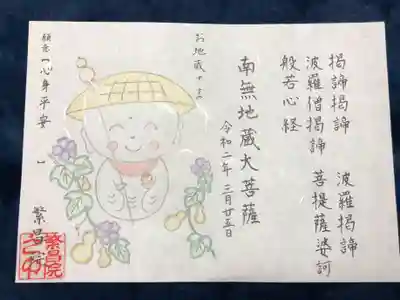 掲諦掲諦 波羅掲諦
波羅僧掲諦 菩提薩婆訶
般若心経
南無地蔵大菩薩
令和二年 三月廿五日
お地蔵さま
願意【心身平安 】
繁昌院
繁昌院